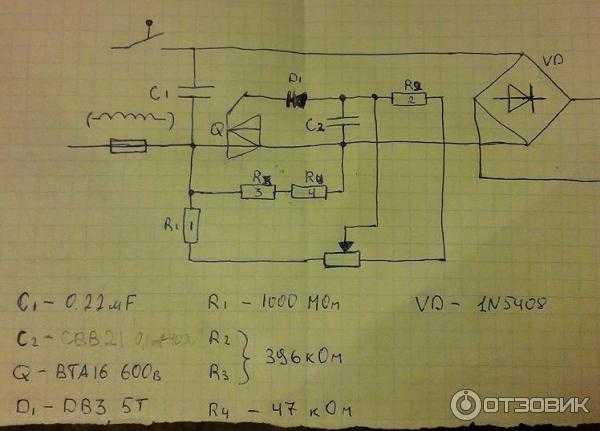 VD
D₁
R2
2
C₁
C₂
Q
R3
R4
3
4
R₁
1
C₁ - 0.22 мF
R₁ - 1000 МОм
VD - 1N5408
C₂ - CBB21
R₂
Q - BTA16 600в
R₃
396 кОм
D₁ - DB3 5T
R₄ - 47 кОм
ОТЗОВИК